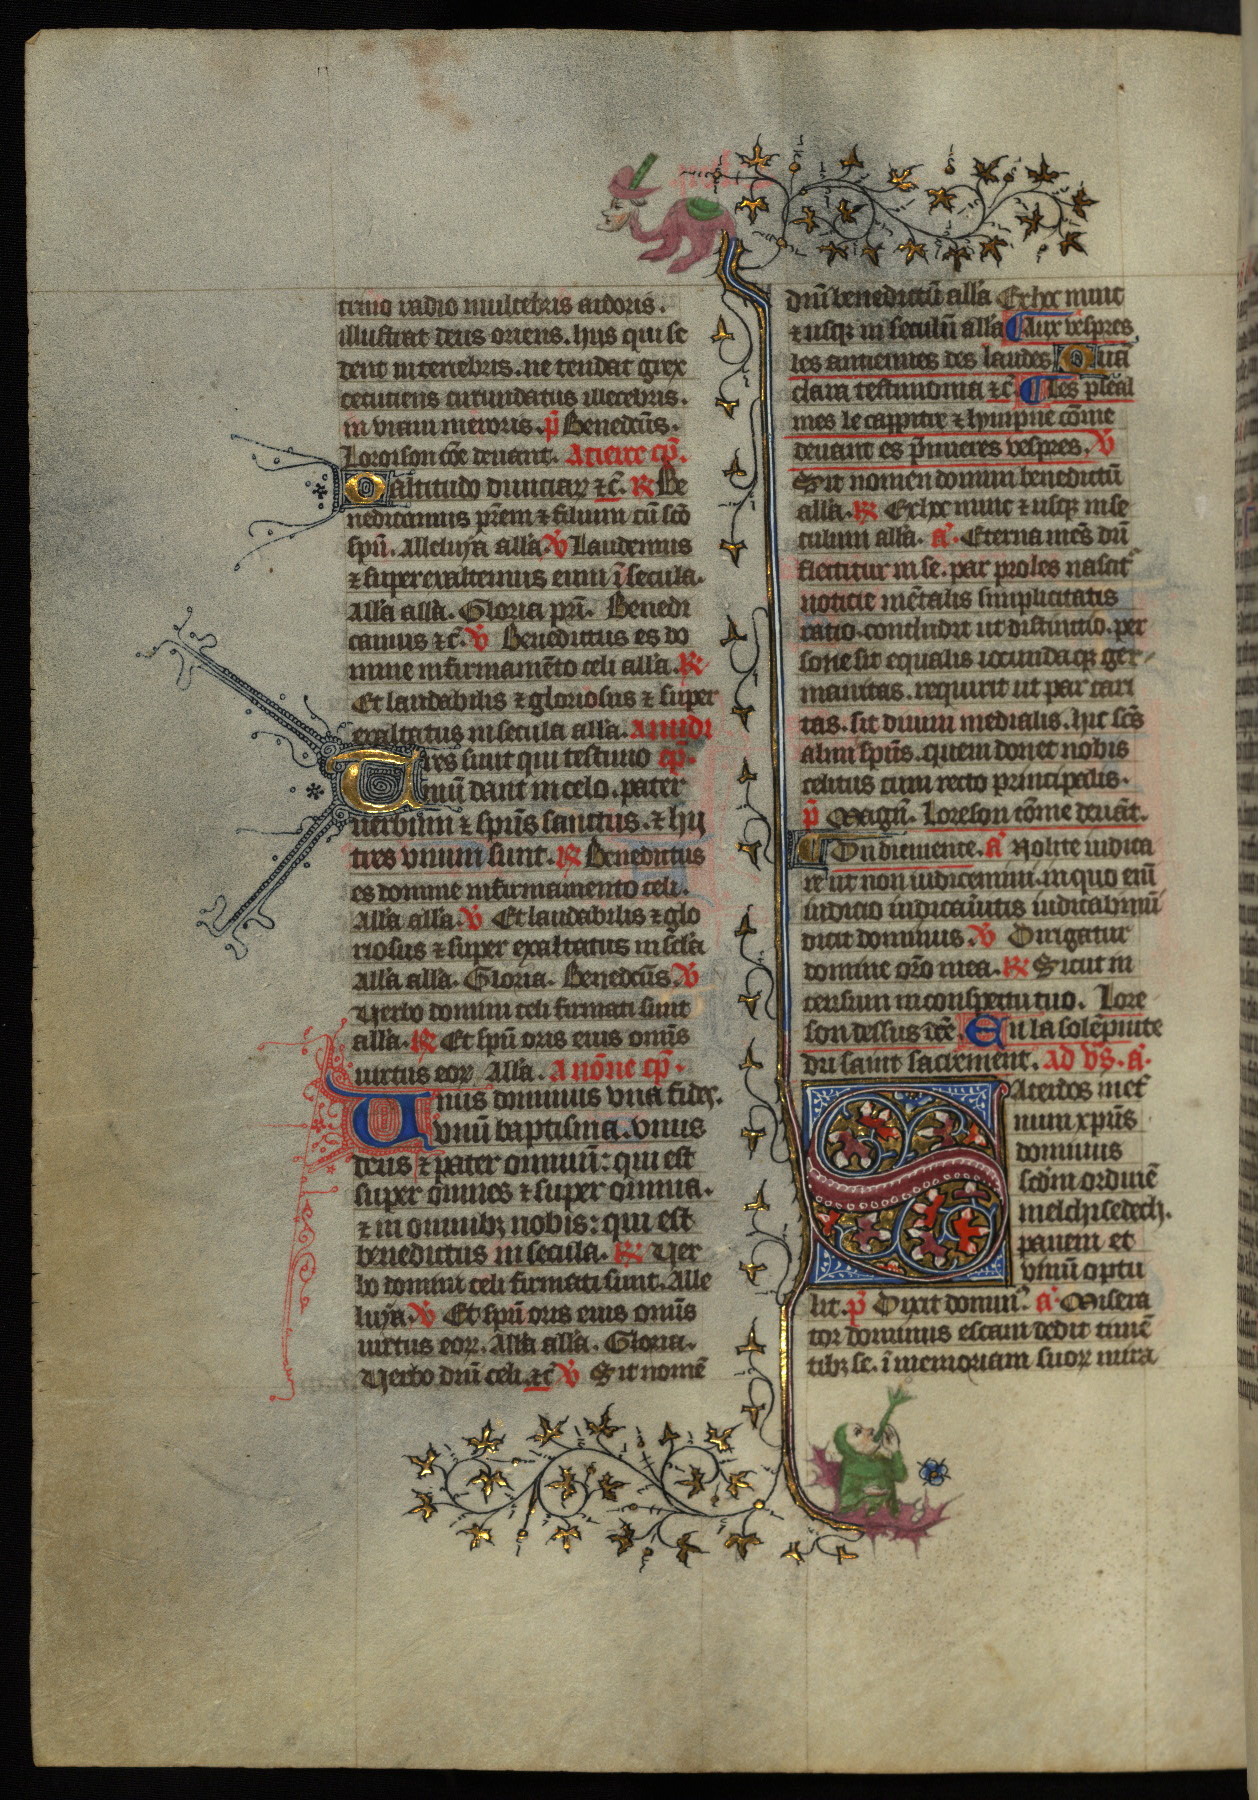 trino radio mulcebris ardoris.
illustrat deus oriens. hijs qui se
dent in tenebris. ne tendat grex
cecutiens circundatus illecebris.
in viam meroris. p̄ Benedc̄us.
Loroison cōe deuant. A tierce cp̄.
O altitudo diuiciaꝝ ⁊c̄. ℟ Be
nedicamus pr̄em ⁊ filium cū sc̄o
spū. Alleluya all'a ℣ Laudemus
⁊ superexaltemus eum ī secula.
All'a all'a. Gloria pr̄i. Benedi
camus ⁊c̄. ℣ Benedictus es do
mine in firmamēto celi all'a. ℟
Et laudabilis ⁊ gloriosus ⁊ super
exaltatus in secula all'a. A midi
Tres sunt qui testimo cp̄.
niū dant in celo. pater
uerbum ⁊ sp̄us sanctus. ⁊ hij
tres vnum sunt. ℟ Benedictus
es domine in firmamento celi.
All'a all'a. ℣ Et laudabilis ⁊ glo
riosus ⁊ super exaltatus in sc̄la
All'a all'a. Gloria. Benedc̄us. ℣
Uerbo domini celi firmati sunt
all'a. ℟ Et spū oris eius om̄is
uirtus eoꝝ All'a. A nōne cp̄.
Unus dominus vna fides.
vnū baptisma. vnus
deus ⁊ pater omniū: qui est
super omnes ⁊ super omnia.
⁊ in omnibꝫ nobis: qui est
benedictus in secula. ℟ Uer
bo domini celi firmati sunt. Alle
luya ℣ Et spū oris eius om̄is
uirtus eoꝝ. All'a all'a. Gloria.
Uerbo dn̄i celi. ⁊c̄ ℣ Sit nomē
dn̄i benedictū all'a Ex hoc nunc
⁊ usqꝫ in seculū all'a ¶ Aux vespres
les antiennes des laudes O quā
clara testimonia ⁊c̄ ¶ Les psēal
mes le cappitre ⁊ hympne cōme
deuant es p̄mieres vespres. ℣
Sit nomen domini benedictū
all'a. ℟ Ex hoc nunc ⁊ usqꝫ in se
culum all'a. a'. Eterna mēs dū
flectitur in se. par proles nascit'
noticie mētalis simplicitatis
ratio. concludit ut distinctio. per
sone sit equalis iocundaqꝫ ger
manitas. requirit ut par cari
tas. sit duum medialis. hic sc̄s
almi spū̄s. quem donet nobis
celitus cum recto principalis.
p̄ Magn̄. Loreson cōme deuāt.
Du diemence. a' Nolite iudica
re ut non iudicemini. in quo enī
iudicio iudicaueritis iudicabimī
dicit dominus. ℣ Dirigatur
domine orō mea. ℟ Sicut in
censum in conspectu tuo. Lore
son dessus dc̄e. En la solēpnite
du saint sacrement. Ad v̄s. a'.
Sacerdos inet'
num xpūs
dominus
scdm ordinē
melchisedech.
panem et
vinū optu
lit. p̄ Dixit domin'. a' Misera
tor dominus escam dedit timē
tibꝫ se. ī memoriam suoꝝ mira